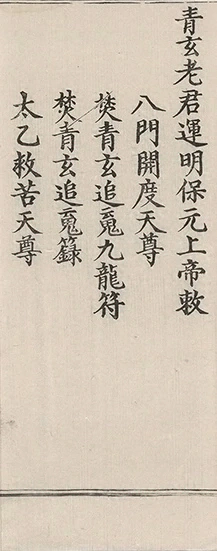 青玄老君運明保元上帝敕
八門開度天尊
焚青玄追䰟九龍符
焚青玄追䰟籙
太乙救苦天尊